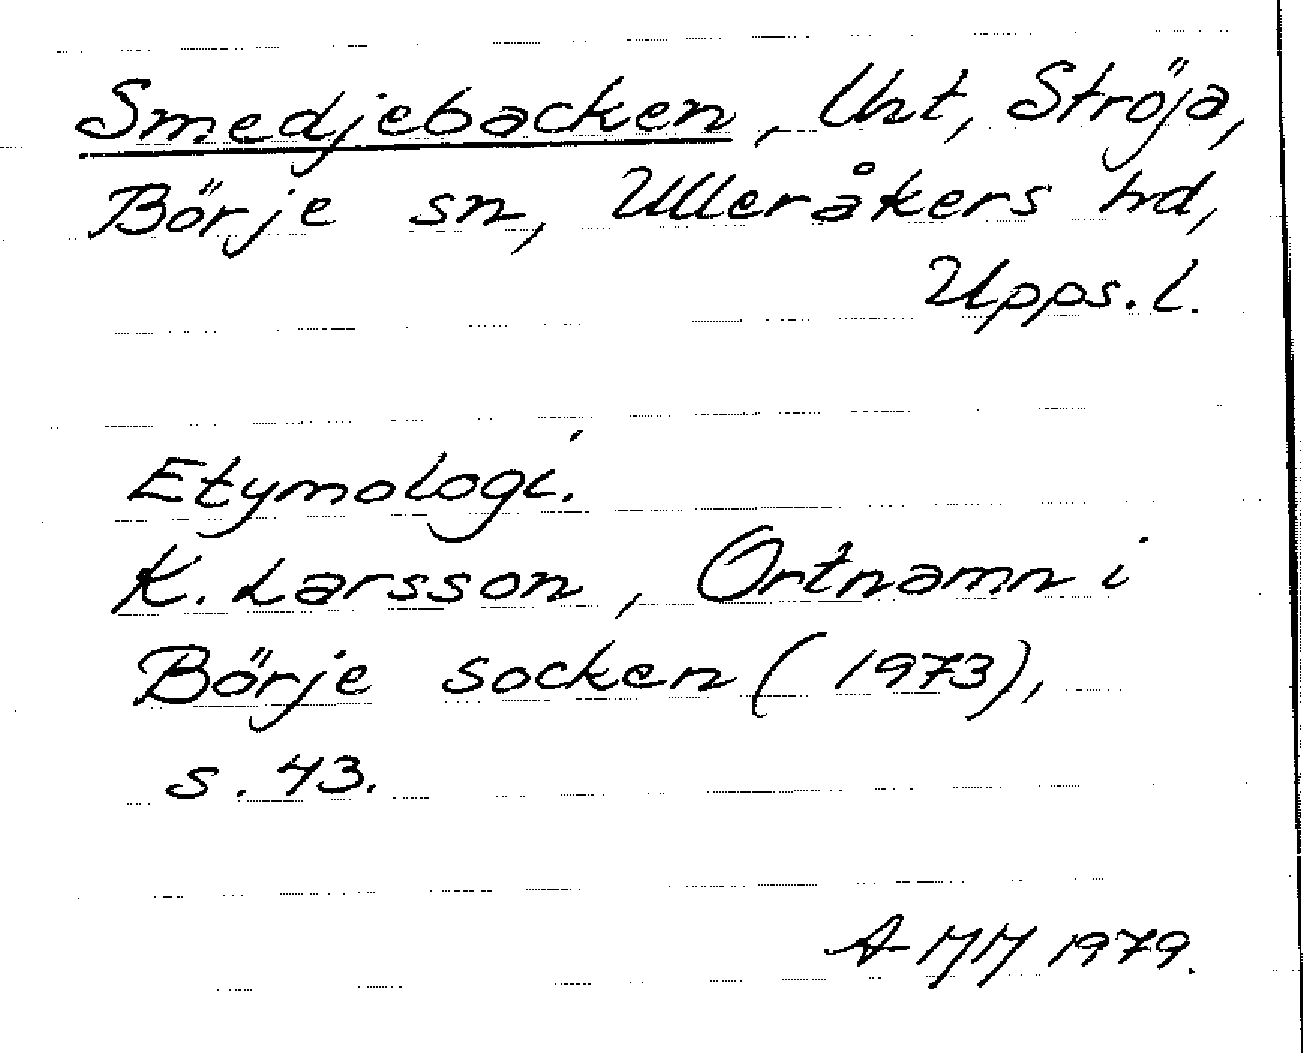 Smedjebacken, Uht, Ströja,
Börje sn, Ulleråkers hd,
Upps. l.
Etymologi.
K. Larsson, Ortnamn i
Börje socken (1973),
s. 43.
A MM 1979.